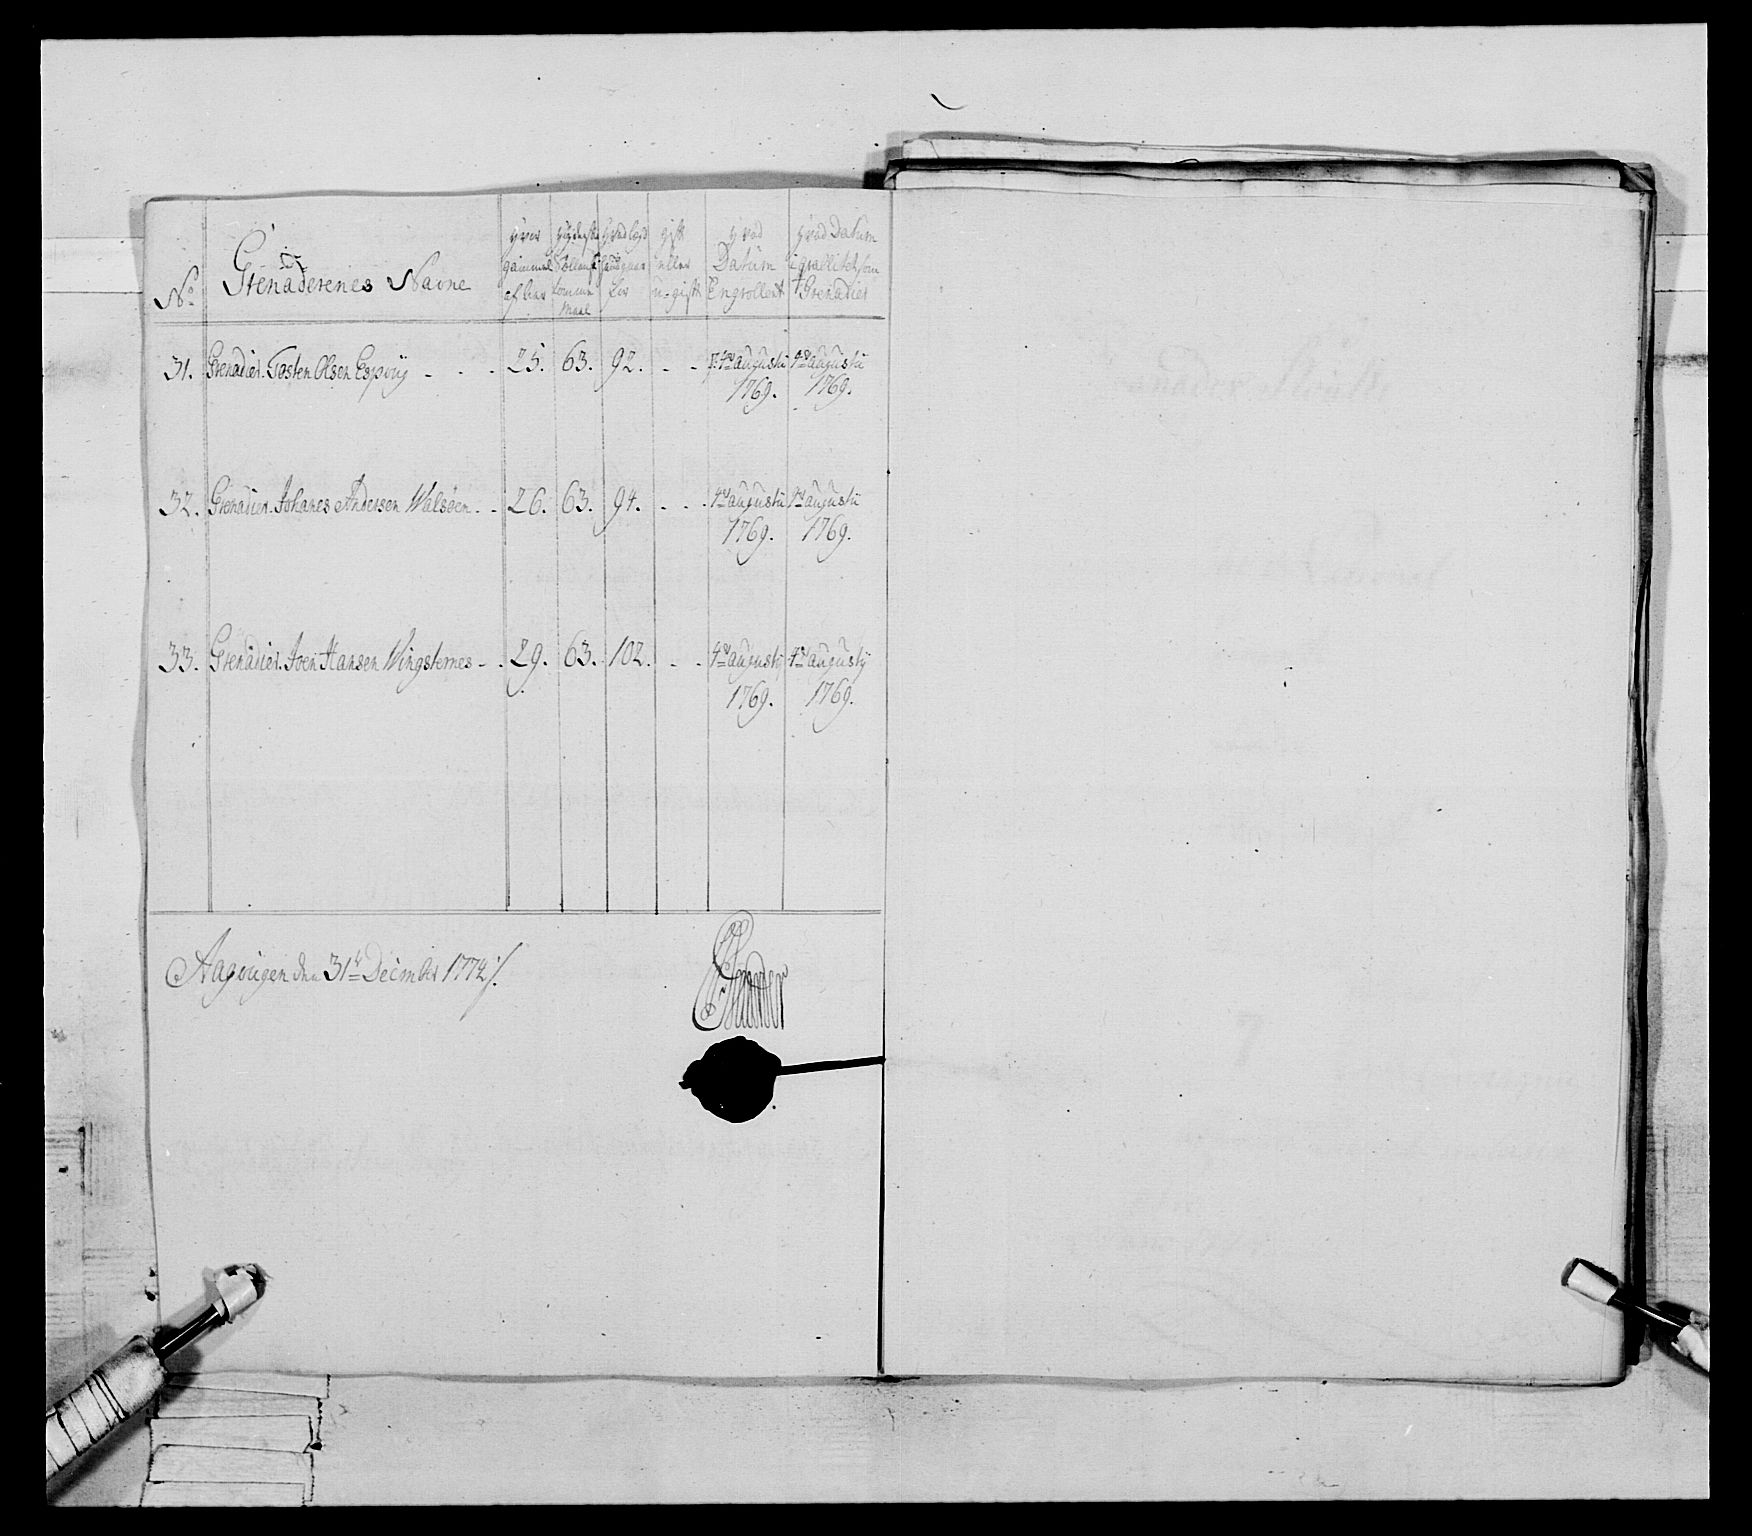 No
Grenaderenes Navne
hvor gammel af
Maal
gift eller u-gift
hvad Datum Engrollert
hvad Datum som Grenadier
31. Grenadier. Tosten Olsen Espøÿ - - - 25. 63. 92. - - 4de augustii 1769. 4de augustii 1769.
32. Grenadier. Johanes Andersen Walsøen - - 26. 63. 94. - - - 4de augustii 1769. 4de augustii 1769.
33. Grenadier. Joen Hansen Wingsternes - - 29. 63. 102. - - 4de augustij 1769. 4de augustij 1769.
Aagvigen den 31te December 1772 ./.